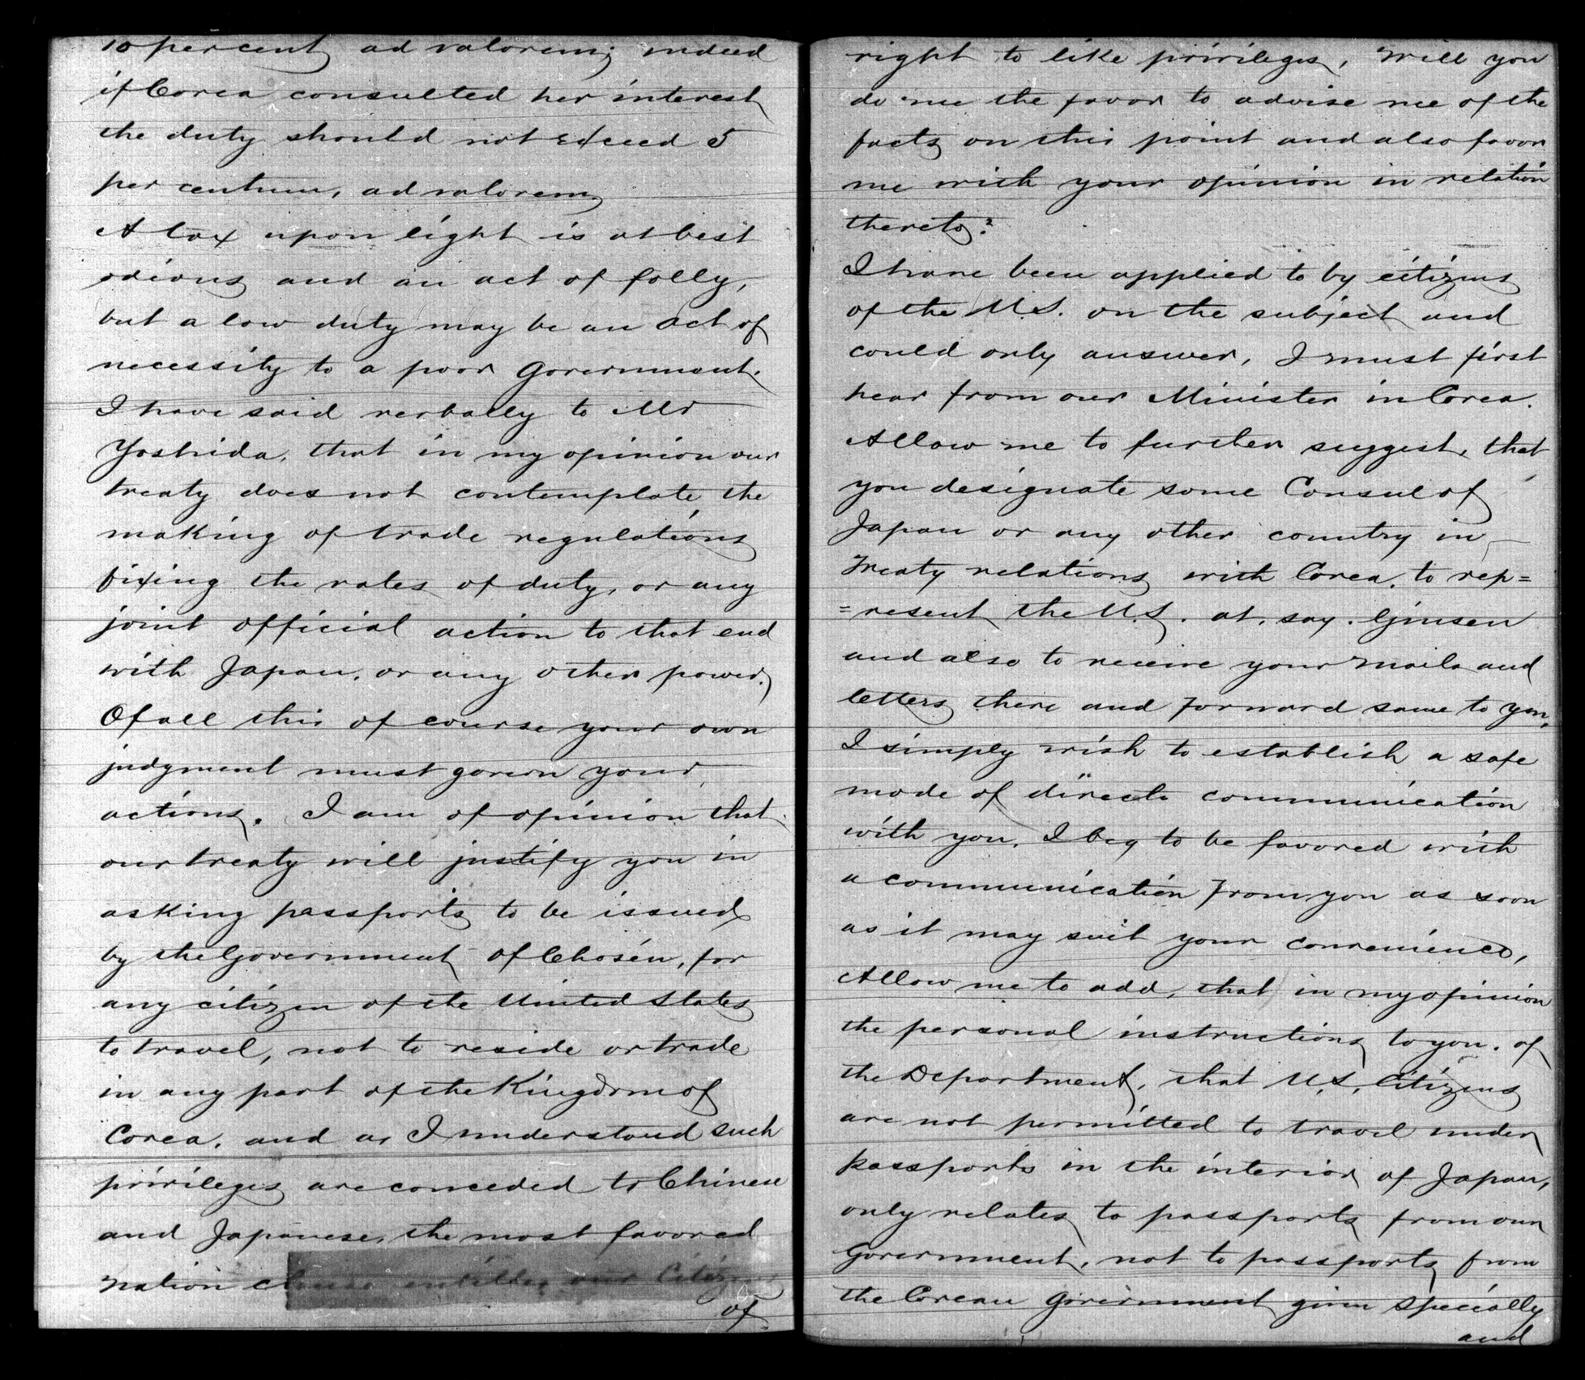 10 per cent ad valorem; indeed
if Corea consulted her interest
the duty should not exceed 5
per centum, ad valorem
A tax upon light is at best
odious and an act of folly,
but a low duty may be an act of
necessity to a poor Government.
I have said verbally to Mr
Yoshida, that in my opinion our
treaty does not contemplate the
making of trade regulations
fixing the rates of duty, or any
joint official action to that end
with Japan, or any other power.
Of all this of course your own
judgment must govern your
actions. I am of opinion that
our treaty will justify you in
asking passports to be issued
by the Government of Chosén, for
any citizen of the United States
to travel, not to reside or trade
in any part of the Kingdom of
Corea. and as I understand such
privileges are conceded to Chinese
and Japanese, the most favored
nation clause entitles our Citizens
of
right to like privileges, Will you
do me the favor to advise me of the
facts on this point and also favor
me with your opinion in relation
thereto?
I have been applied to by citizens
of the U.S. on the subject and
could only answer, I must first
hear from our Minister in Corea.
Allow me to further suggest, that
you designate some Consul of
Japan or any other country in
Treaty relations with Corea, to rep=
=resent the U.S. at, say. Ginsen
and also to receive your mails and
letters there and forward same to you,
I simply wish to establish a safe
mode of direct communication
with you, I beg to be favored with
a communication from you as soon
as it may suit your convenience,
Allow me to add, that in my opinion
the personal instructions to you. of
the Department, that U.S. Citizens
are not permitted to travel under
passports in the interior of Japan,
only relates to passports from our
Government, not to passports from
the Corean Government given specially
and